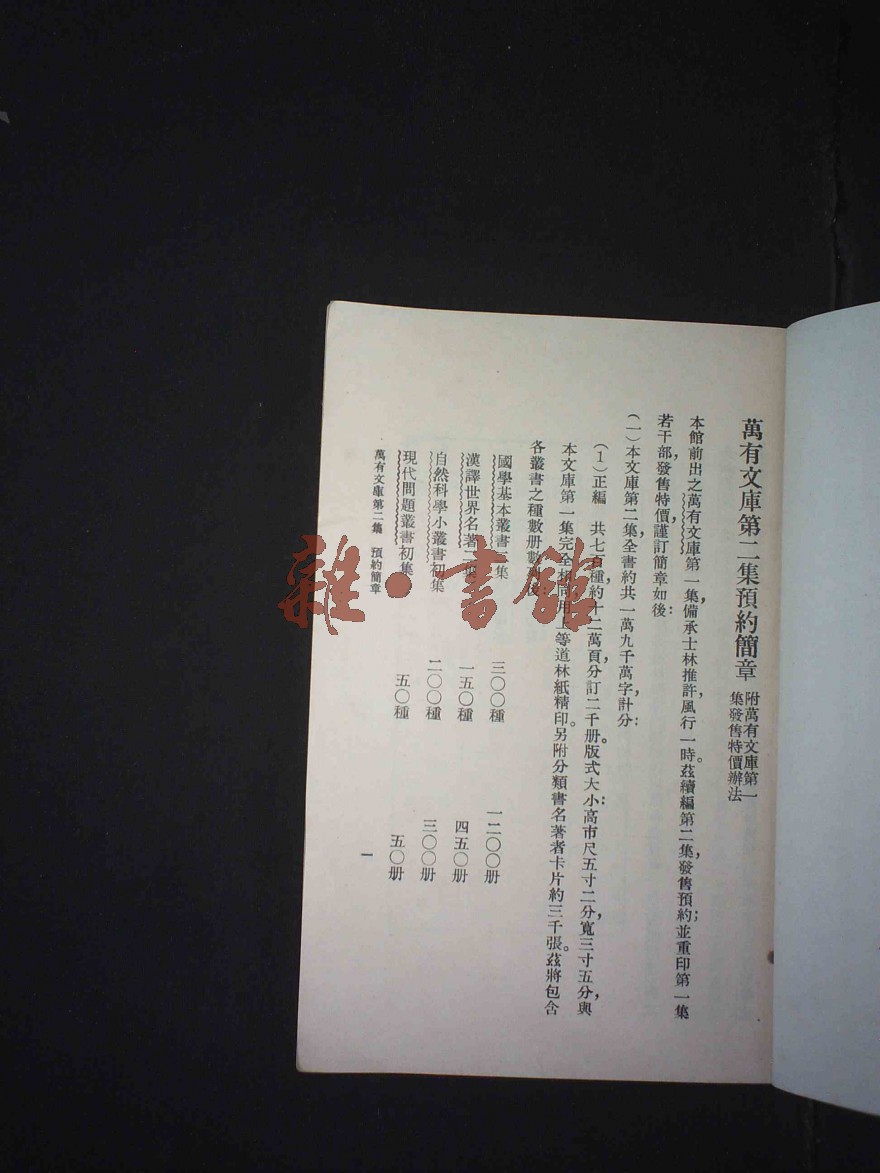 萬有文庫第二集預約簡章
附萬有文庫第一
集發售特價辦法
本館前出之萬有文庫第一集備承士林推許，風行一時。茲續編第二集，發售預約；並重印第一集
若干部，發售特價，謹訂簡章如後：
（一）本文庫第二集全書約共一萬九千萬字，計分：
（1）正編　共七百種，約十二萬頁，分訂二千册。版式大小：高市尺五寸二分，寬三寸五分，與
本文庫第一集完全相同，用上等道林紙精印。另附分類書名著者卡片約三千張。茲將包含
各叢書之種數册數列後：
國學基本叢書二集　三〇〇種　一二〇〇册
漢譯世界名著二集　一五〇種　四五〇册
自然科學小叢書初集　二〇〇種　三〇〇册
現代問題叢書初集　五〇種　五〇册
萬有文庫第二集　預約簡章
一
雜·書館